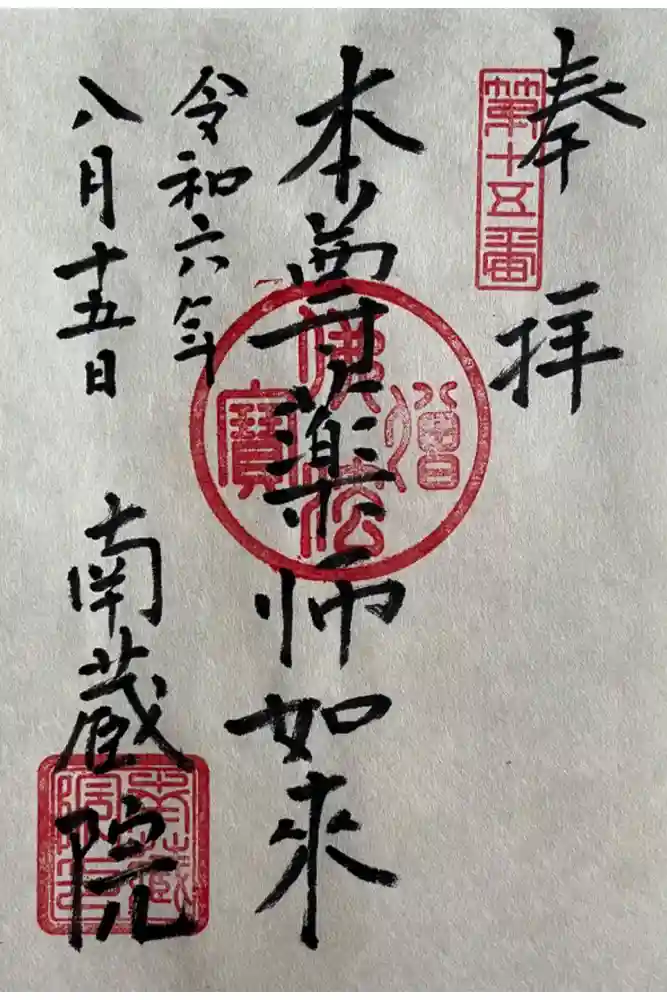 奉拝
第十五番
本尊薬師如来
佛法僧寶
令和六年
八月十五日
南蔵院